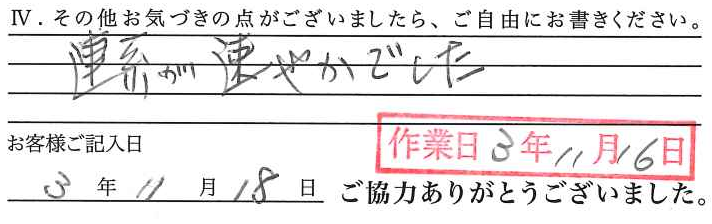 Ⅳ．その他お気づきの点がございましたら、ご自由にお書きください。
連系が速やかでした
お客様ご記入日
作業日 3年11月16日
3 年 11 月 18 日 ご協力ありがとうございました。